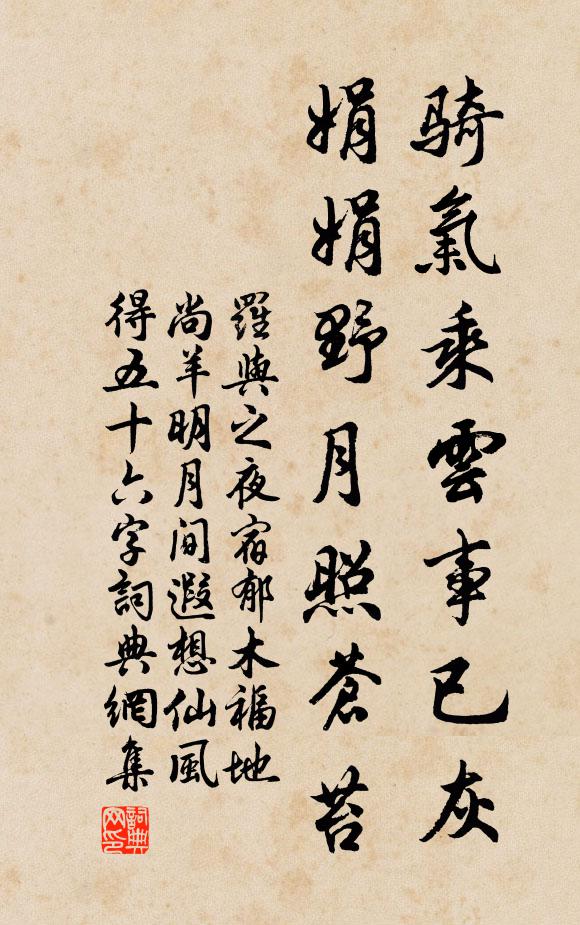 騎氣乘雲事已灰
娟娟野月照蒼苔
羅與之夜宿郁木福地
尚羊明月間遐想仙風
得五十六字詞典網集
詞典網印